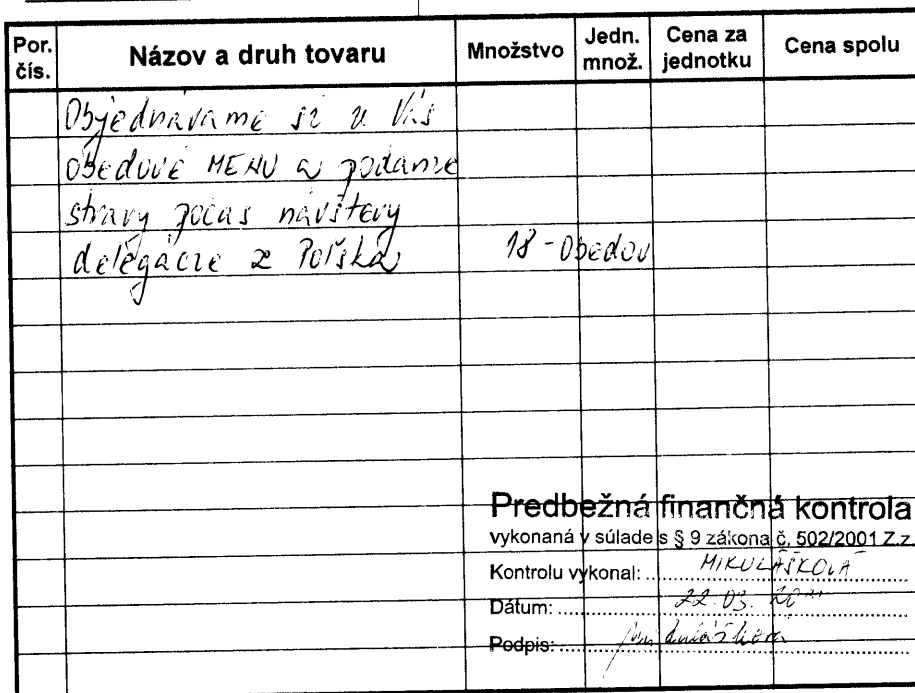 Por. čís. Názov a druh tovaru Množstvo Jedn. množ. Cena za jednotku Cena spolu
Objednávame si u Vás
obedové MENU a podanie
stravy počas návštevy
delegácie z Poľska 18 - Obedov
Predbežná finančná kontrola
vykonaná v súlade s § 9 zákona č. 502/2001 Z.z.
Kontrolu vykonal: MIKULÁŠKOVÁ
Dátum: 22. 03.
Podpis: